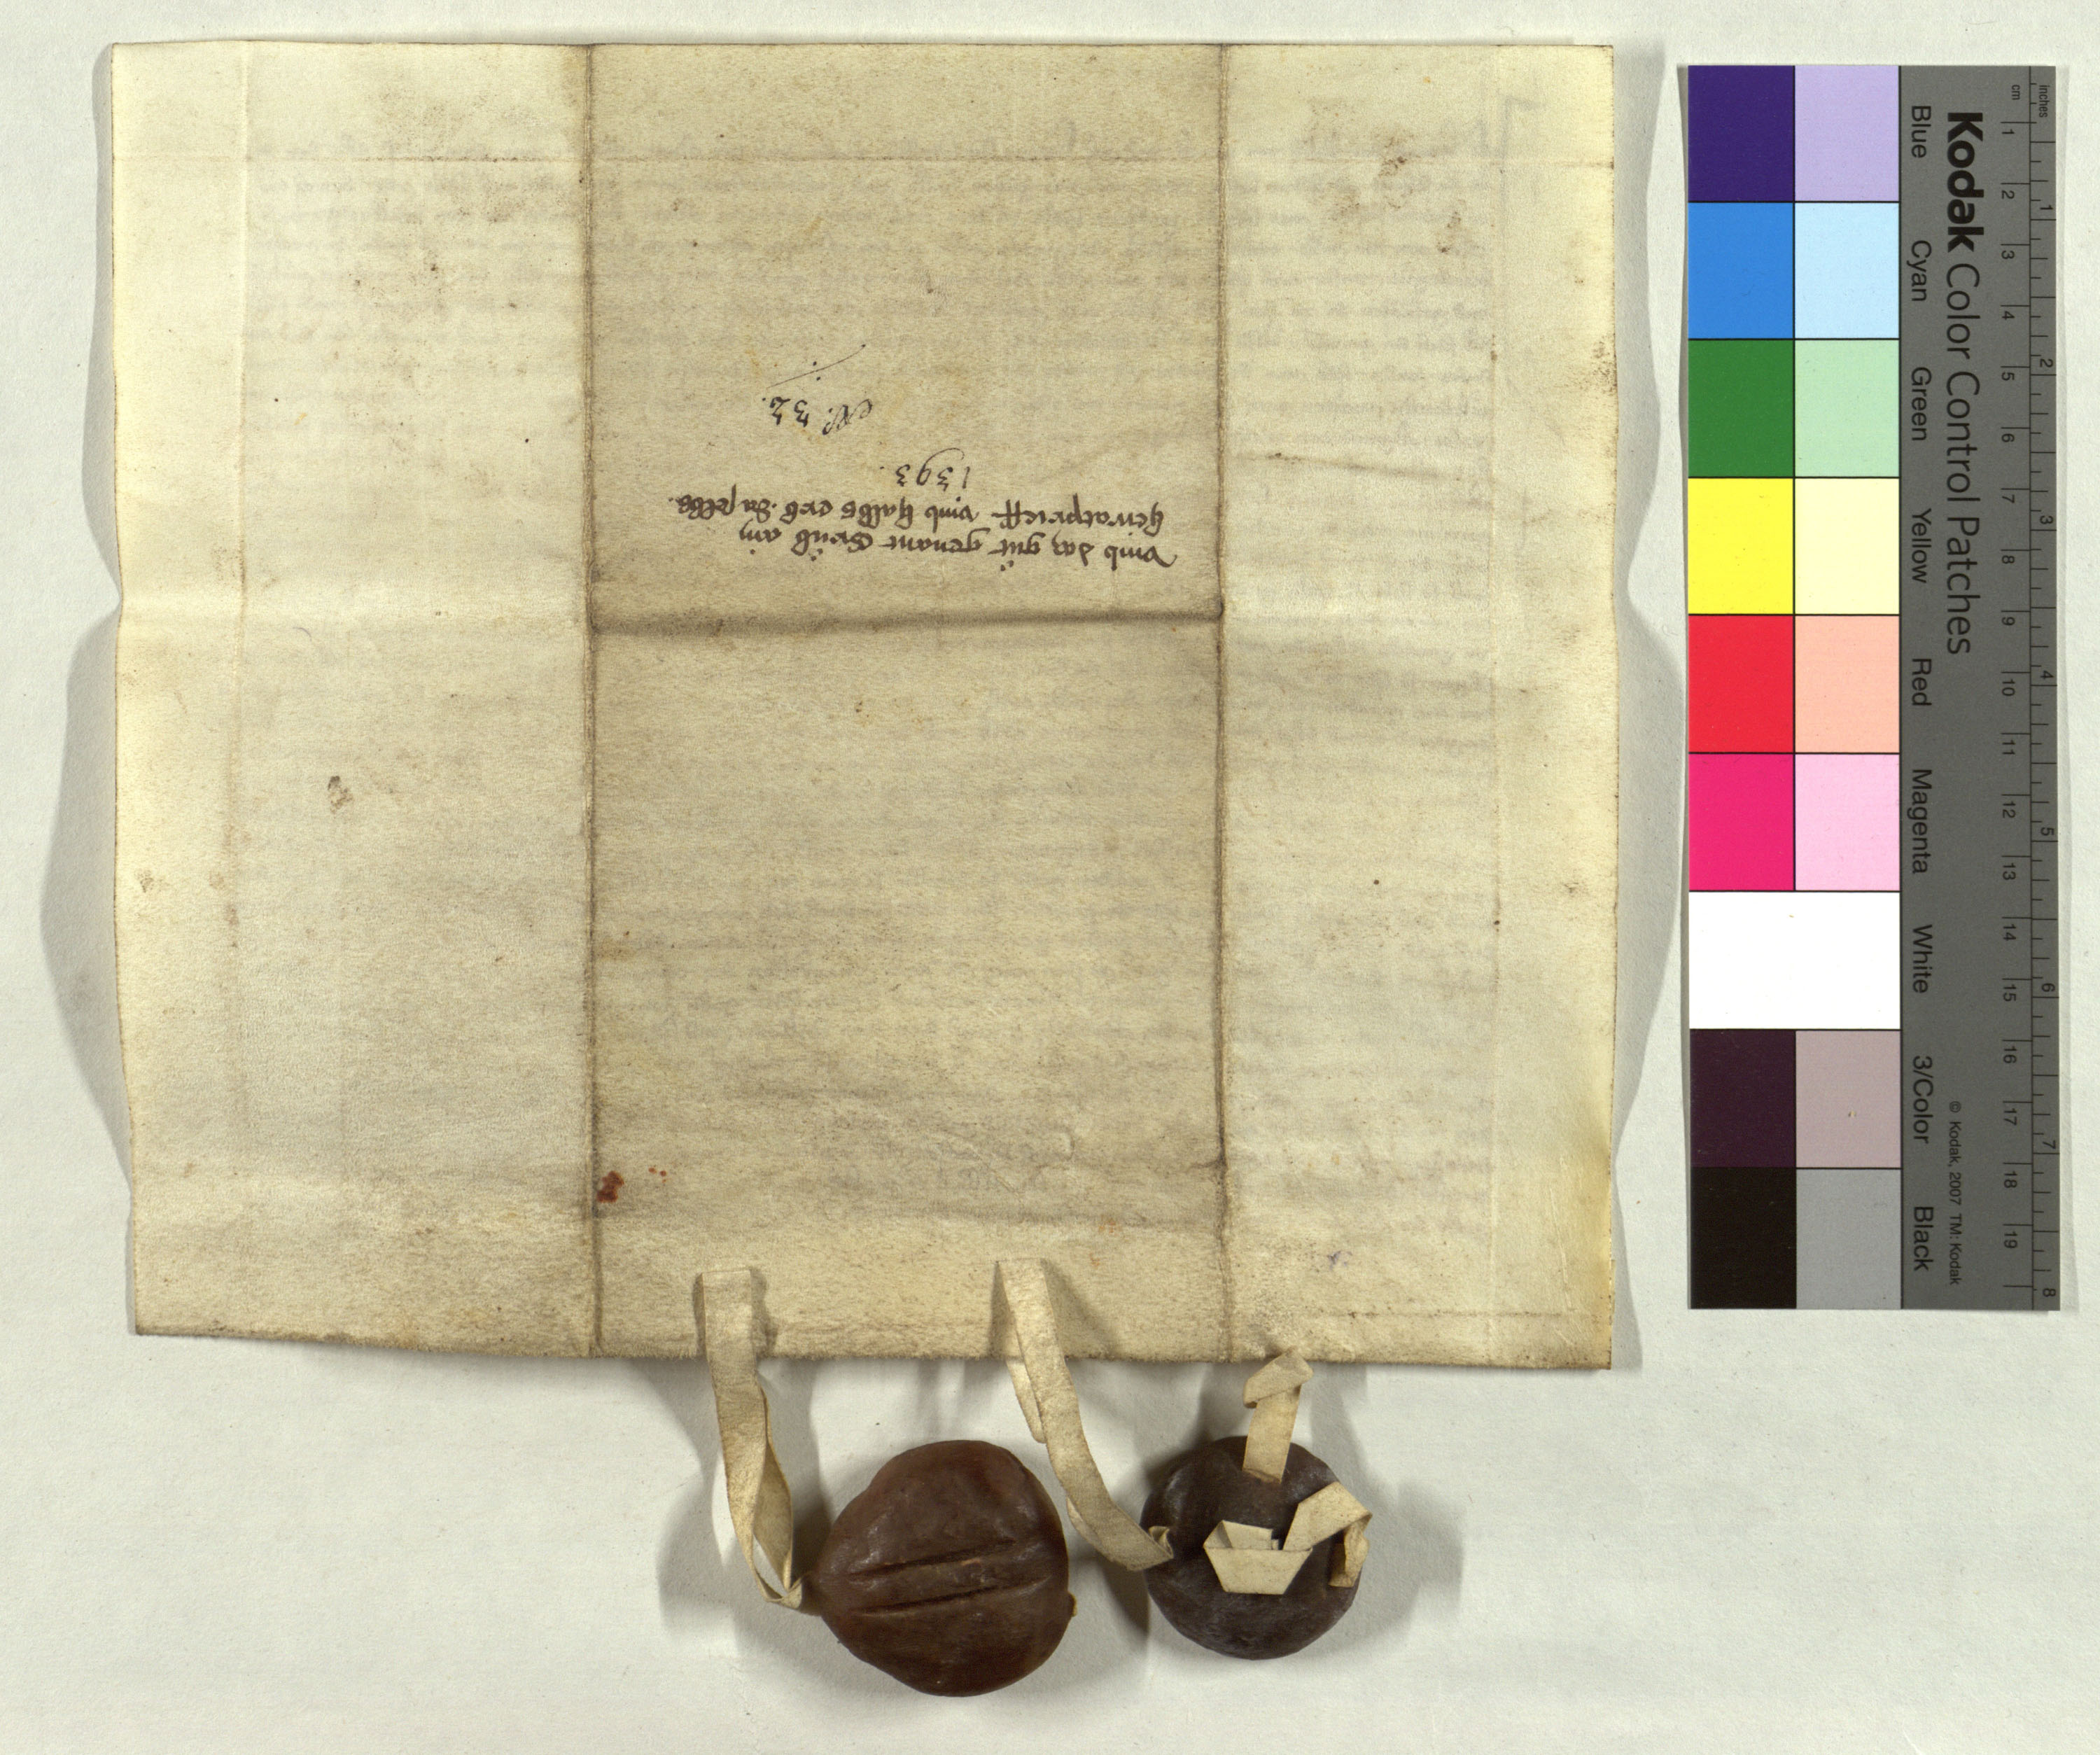 vmb das gůt genant Grůb ain
heyratprieff vmb halbs erb daselbs.
1393.
N. 32.
Kodak Color Control Patches
Blue Cyan Green Yellow Red Magenta White 3/Color Black
© Kodak, 2007 TM: Kodak
cm 1 2 3 4 5 6 7 8 9 10 11 12 13 14 15 16 17 18 19
inches 1 2 3 4 5 6 7 8